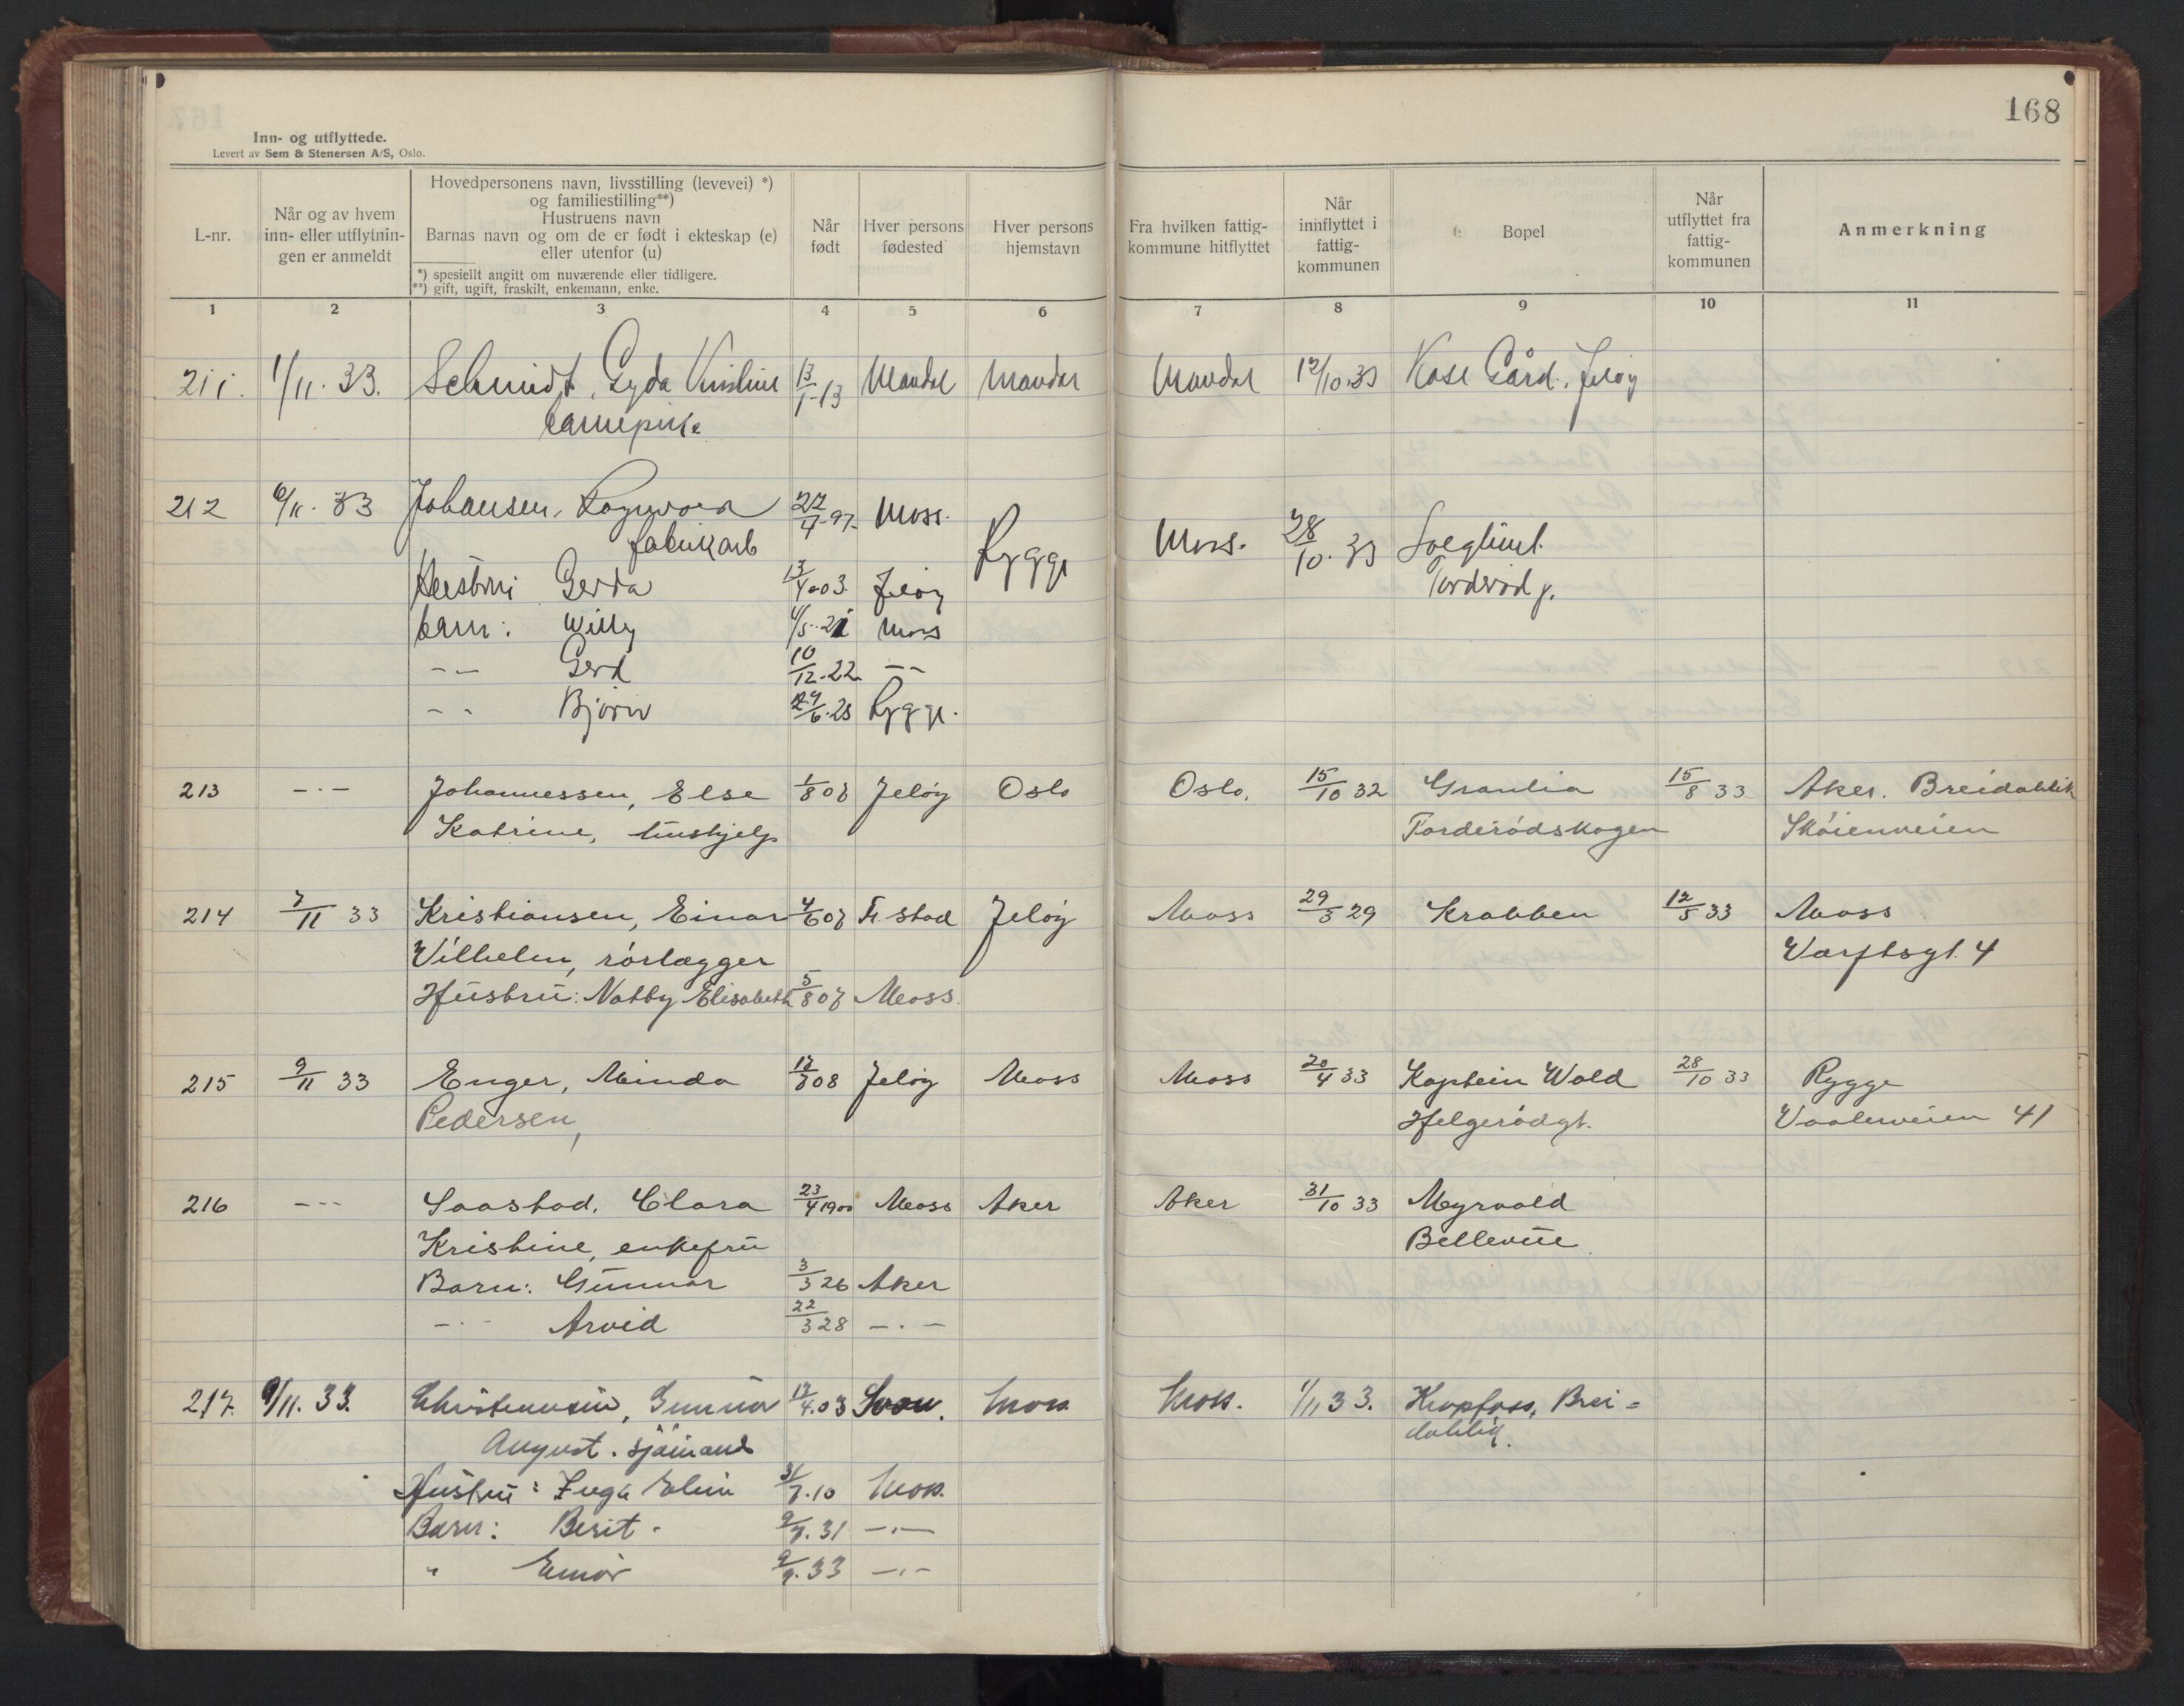 168
Inn- og utflyttede.
Levert av Sem & Stenersen A/S, Oslo.
L-nr.
Når og av hvem inn- eller utflytnin-gen er anmeldt
Hovedpersonens navn, livsstilling (levevei) *)
og familiestilling**)
Hustruens navn
Barnas navn og om de er født i ekteskap (e)
eller utenfor (u)
*) spesiellt angitt om nuværende eller tidligere.
**) gift, ugift, fraskilt, enkemann, enke.
Når født
Hver persons fødested
Hver persons hjemstavn
Fra hvilken fattig-kommune hitflyttet
Når innflyttet i fattig-kommunen
Bopel
Når utflyttet fra fattig-kommunen
Anmerkning
1 2 3 4 5 6 7 8 9 10 11
211. 1/11. 33. Schmidt, Gyda Kristine 13/1-13 Mandal Mandal Mandal 12/10.33 Kase Gård, Jeløy
barnepike
212 6/11. 33 Johansen, Ragnvald 22/4-97 Moss. Rygge Moss. 28/10.33 Solglimt.
fabrikarb Torderød g.
Hustru Gerda 13/4-03 Jeløy
barn: Willy 4/5-21 Moss
-- Gerd 10/12-22 --
-- Bjørn 24/6-28 Rygge.
213 -·- Johannessen, Else 1/8 07 Jeløy Oslo Oslo. 15/10 32 Granlia 15/8 33 Aker. Breidablik
Katrine, hushjelp Torderødskogen Skøienveien
214 7/11 33 Kristiansen, Einar 4/6 07 Fr.stad Jeløy Moss 29/3 29 Krabben 12/5 33 Moss
Vilhelm, rørlægger Varftsgt. 4
Hustru: Nabby Elisabeth 5/8 07 Moss.
215 9/11 33 Enger, Minda 17/7 08 Jeløy Moss Moss 20/4 33 Kaptein Wold 28/10 33 Rygge
Pedersen, Helgerødgt. Vaalerveien 41
216 -·- Saastad, Clara 23/4 1900 Moss Aker Aker 31/10 33 Myrvold
Kristine, enkefru Bellevue
Barn: Gunnar 3/3 26 Aker
-·- Arvid 22/3 28 -·-
217. 9/11. 33. Christensen, Gunnar 17/4.03 Moss Moss. 1/11 33. Kropfoss, Brei-
August. sjømand dablik.
Hustru: Inga Elin 31/7.10 Moss.
Barn: Berit 9/7.31 -·-
" 9/9.33 -·-